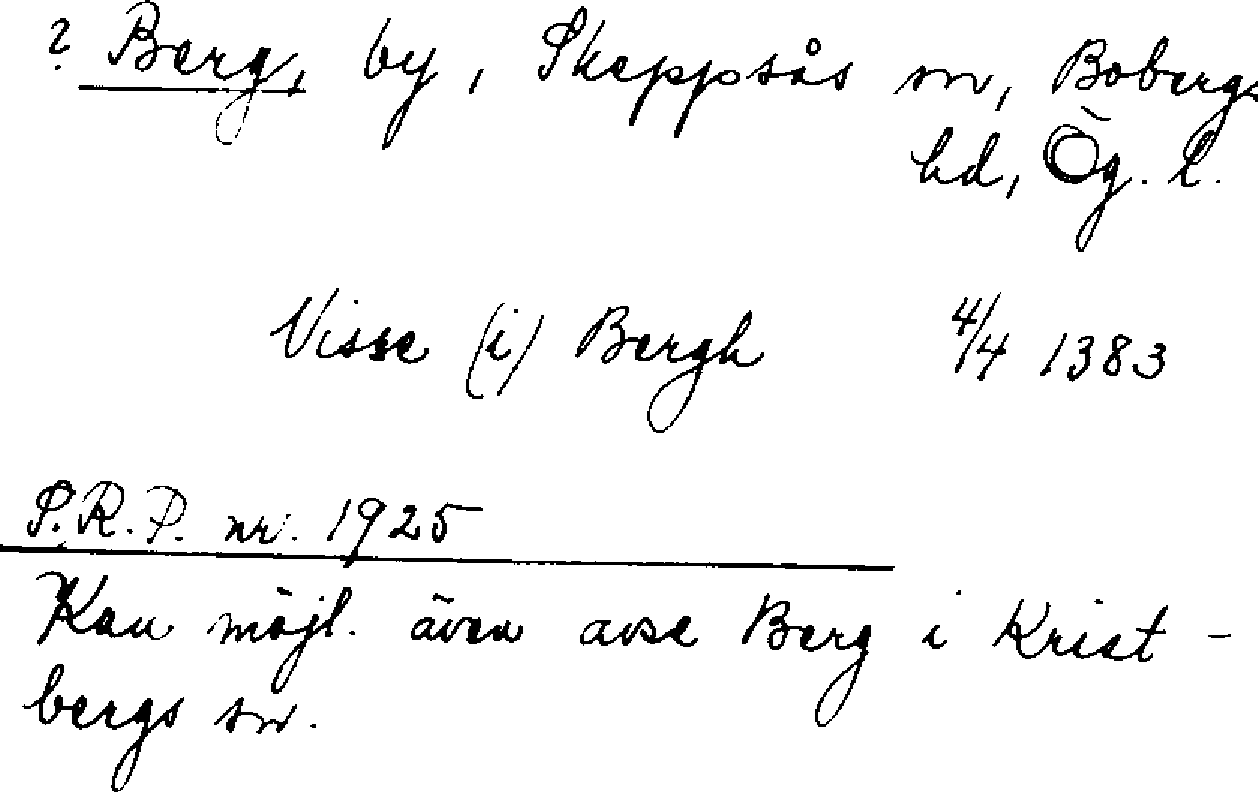 ? Berg, by, Skeppsås sn, Bobergs
hd, Ög. l.
Visse (i) Bergh 4/4 1383
S.R.P. nr. 1925
Kan möjl. även avse Berg i Krist-
bergs sn.